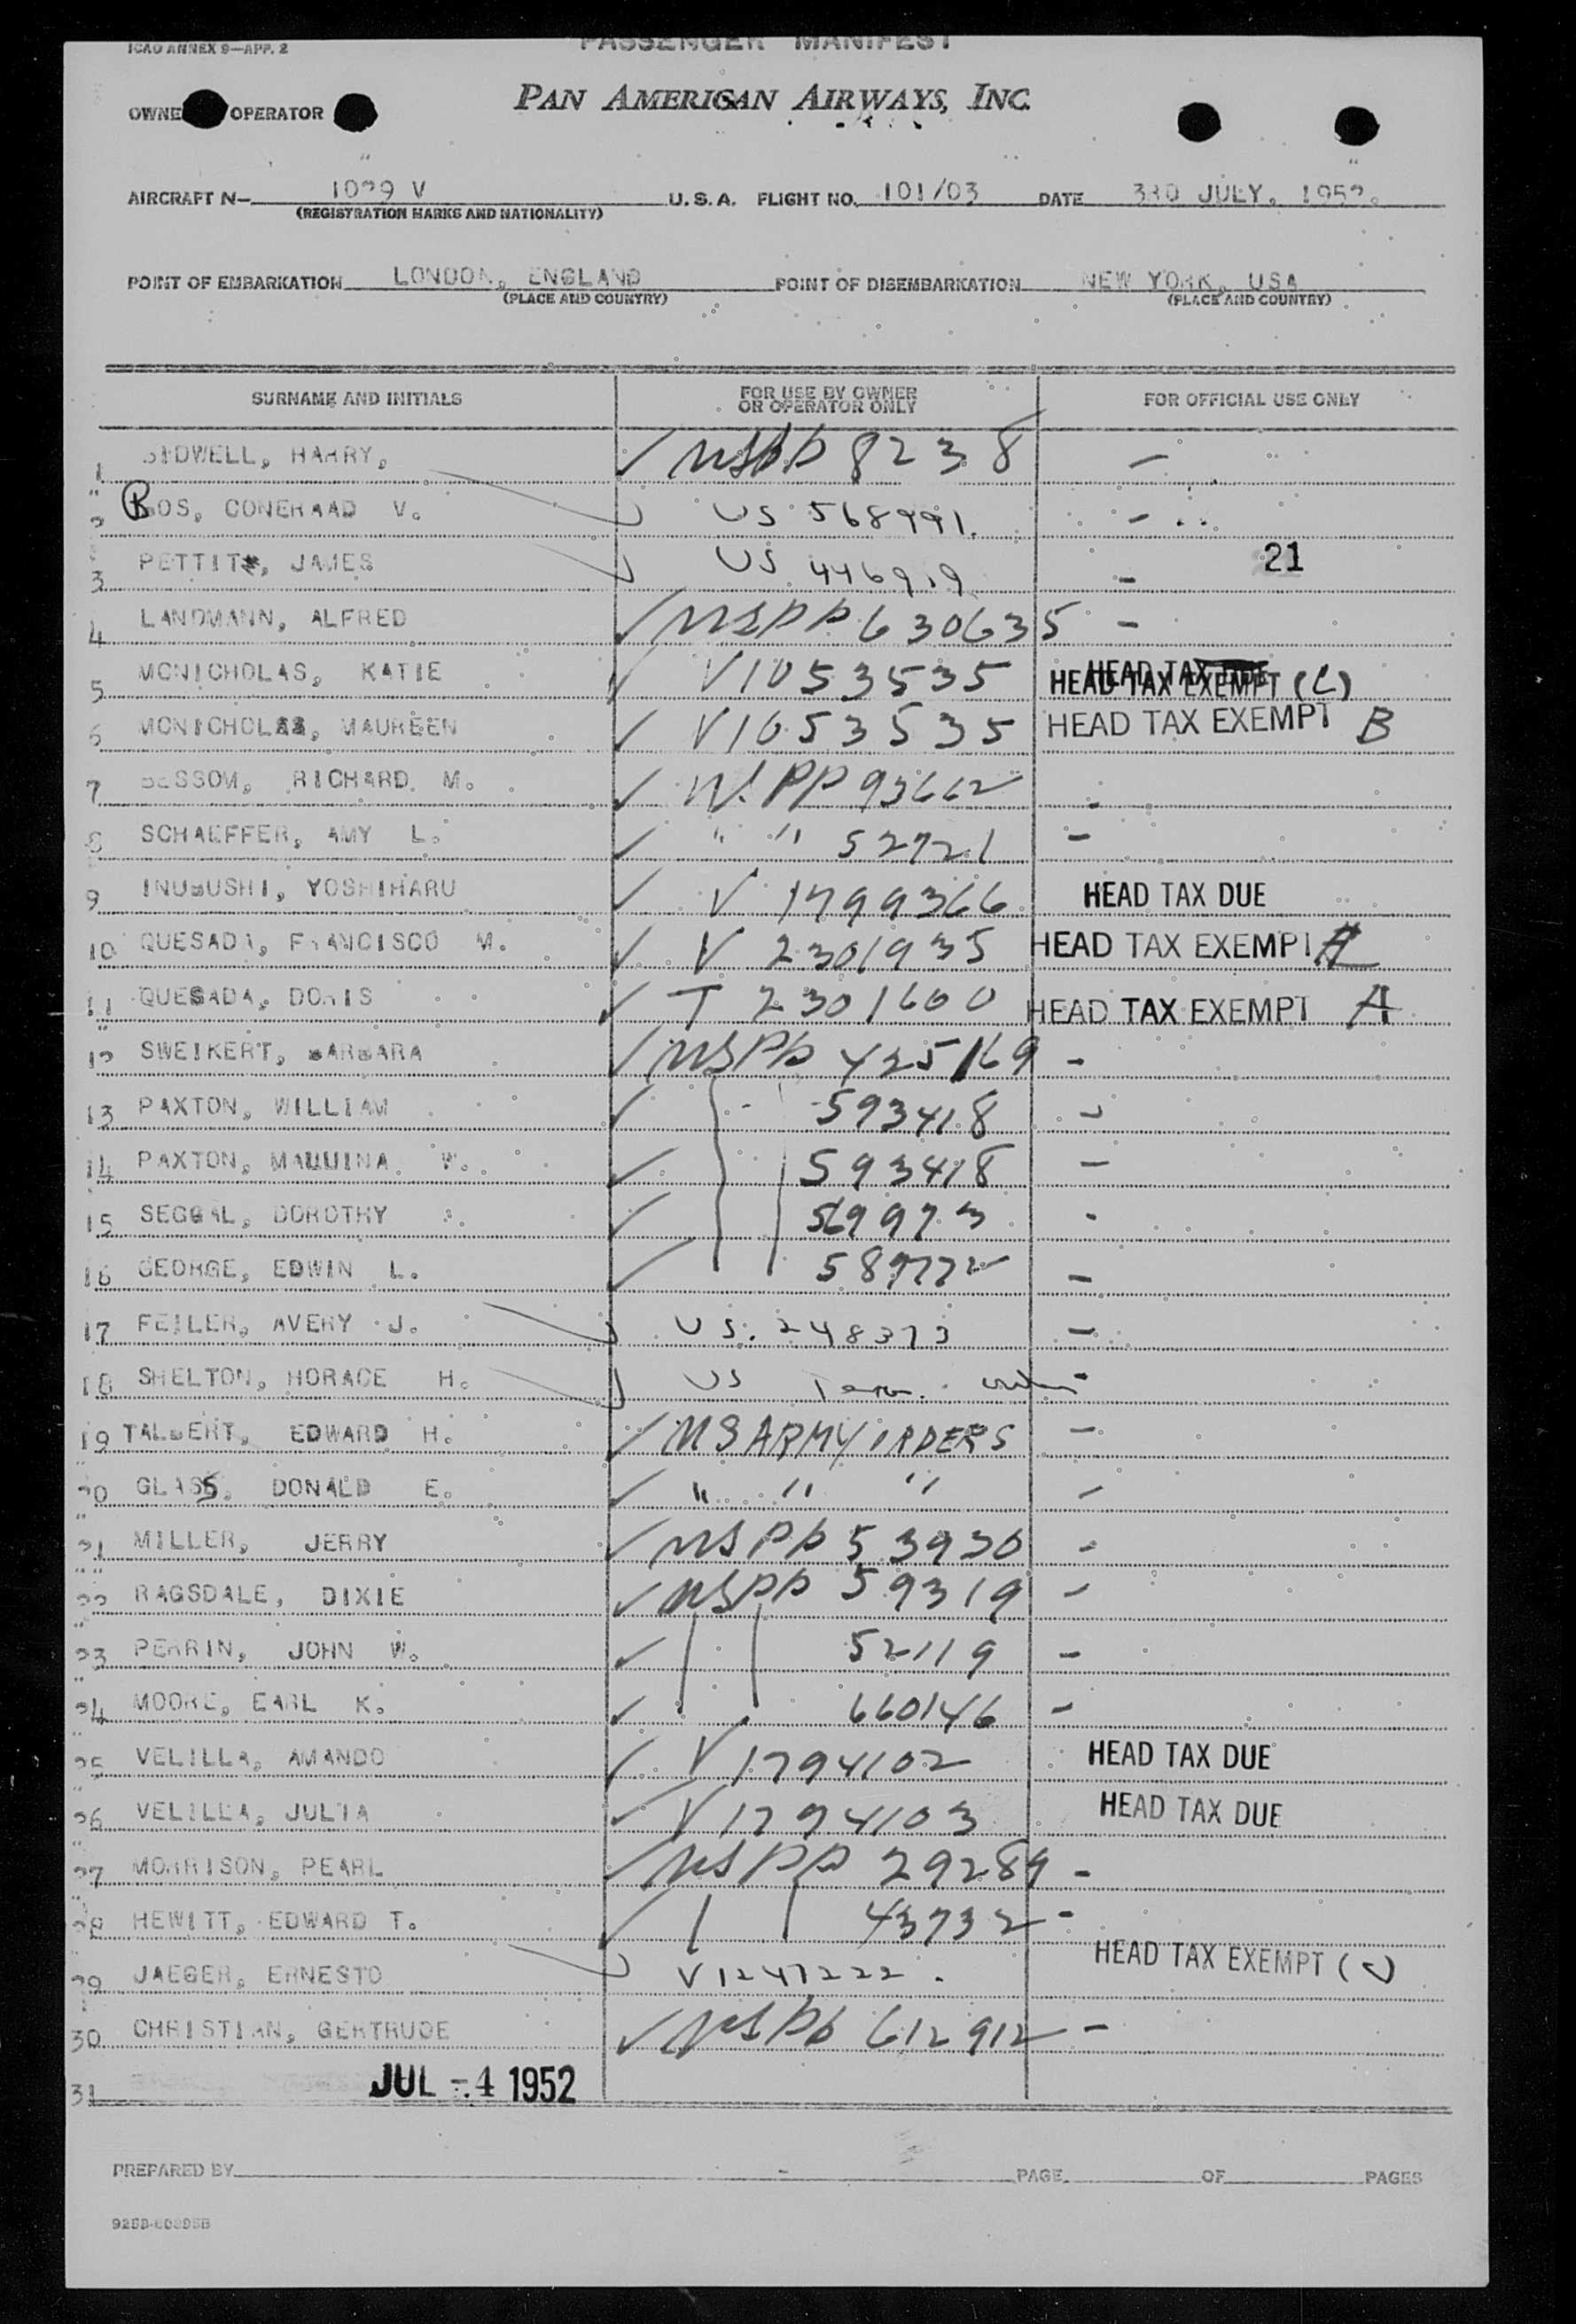 ICAO ANNEX 9—APP. 2
PASSENGER MANIFEST
PAN AMERICAN AIRWAYS, INC.
OWNE OPERATOR
AIRCRAFT N— V U.S.A. FLIGHT NO. 101/03 DATE 3RD JULY, 1952.
(REGISTRATION MARKS AND NATIONALITY)
POINT OF EMBARKATION LONDON, ENGLAND POINT OF DISEMBARKATION NEW YORK, USA
(PLACE AND COUNTRY) (PLACE AND COUNTRY)
SURNAME AND INITIALS FOR USE BY OWNER OR OPERATOR ONLY FOR OFFICIAL USE ONLY
1 SIDWELL, HARRY, ✓ USPP 8238 –
2 BOS, CONERAAD V. ✓ US 568991. –
3 PETTIT, JAMES ✓ US 446919 – 21
4 LANDMANN, ALFRED ✓ USPP 630635 –
5 MCNICHOLAS, KATIE ✓ V1053535 HEAD TAX DUE HEAD TAX EXEMPT (C)
6 MCNICHOLAS, MAUREEN ✓ V1053535 HEAD TAX EXEMPT B
7 BESSOM, RICHARD M. ✓ USPP 93662 -
8 SCHAEFFER, AMY L. ✓ " " 52721 –
9 INUBUSHI, YOSHIHARU ✓ V 1799366 HEAD TAX DUE
10 QUESADA, FRANCISCO M. ✓ V 2301935 HEAD TAX EXEMPT A
11 QUESADA, DORIS ✓ T 2301600 HEAD TAX EXEMPT A
12 SWEIKERT, BARBARA ✓ USPP 425169 -
13 PAXTON, WILLIAM ✓ 593418 -
14 PAXTON, W. ✓ 593418 –
15 DOROTHY S. ✓ 569973 -
16 GEORGE, EDWIN L. ✓ 589772 –
17 FEILER, AVERY J. ✓ US. 248373 –
18 SHELTON, HORACE H. ✓ US -
19 TALBERT, EDWARD H. ✓ US ARMY ORDERS –
20 GLASS, DONALD E. ✓ " " " –
21 MILLER, JERRY ✓ USPP 53930 -
22 RAGSDALE, DIXIE ✓ USPP 59319 –
23 PERRIN, JOHN W. ✓ 52119 –
24 MOORE, EARL K. ✓ 660146 –
25 VELILLA, AMANDO ✓ V 1794102 HEAD TAX DUE
26 VELILLA, JULIA ✓ V 1794103 HEAD TAX DUE
27 MORRISON, PEARL ✓ USPP 29289 –
28 HEWITT, EDWARD T. ✓ 43732 -
29 JAEGER, ERNESTO ✓ V1247222. HEAD TAX EXEMPT (C)
30 CHRISTIAN, GERTRUDE ✓ USPP 612912 –
31 JUL -4 1952
PREPARED BY PAGE OF PAGES